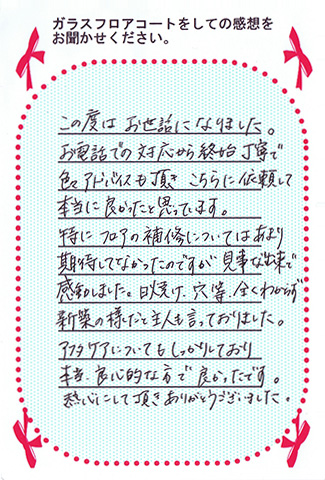 ガラスフロアコートをしての感想を
お聞かせください。
この度は お世話になりました。
お電話での対応から終始丁寧で
色々アドバイスも頂き こちらに依頼して
本当に良かったと思っています。
特に フロアの補修についてはあまり
期待してなかったのですが 見事な出来で
感動しました。日焼け、穴等、全くわからず
新築の様だと主人も言っておりました。
アフタケアについてもしっかりしており
本当、良心的な方で 良かったです。
熱心にして頂きありがとうございました。